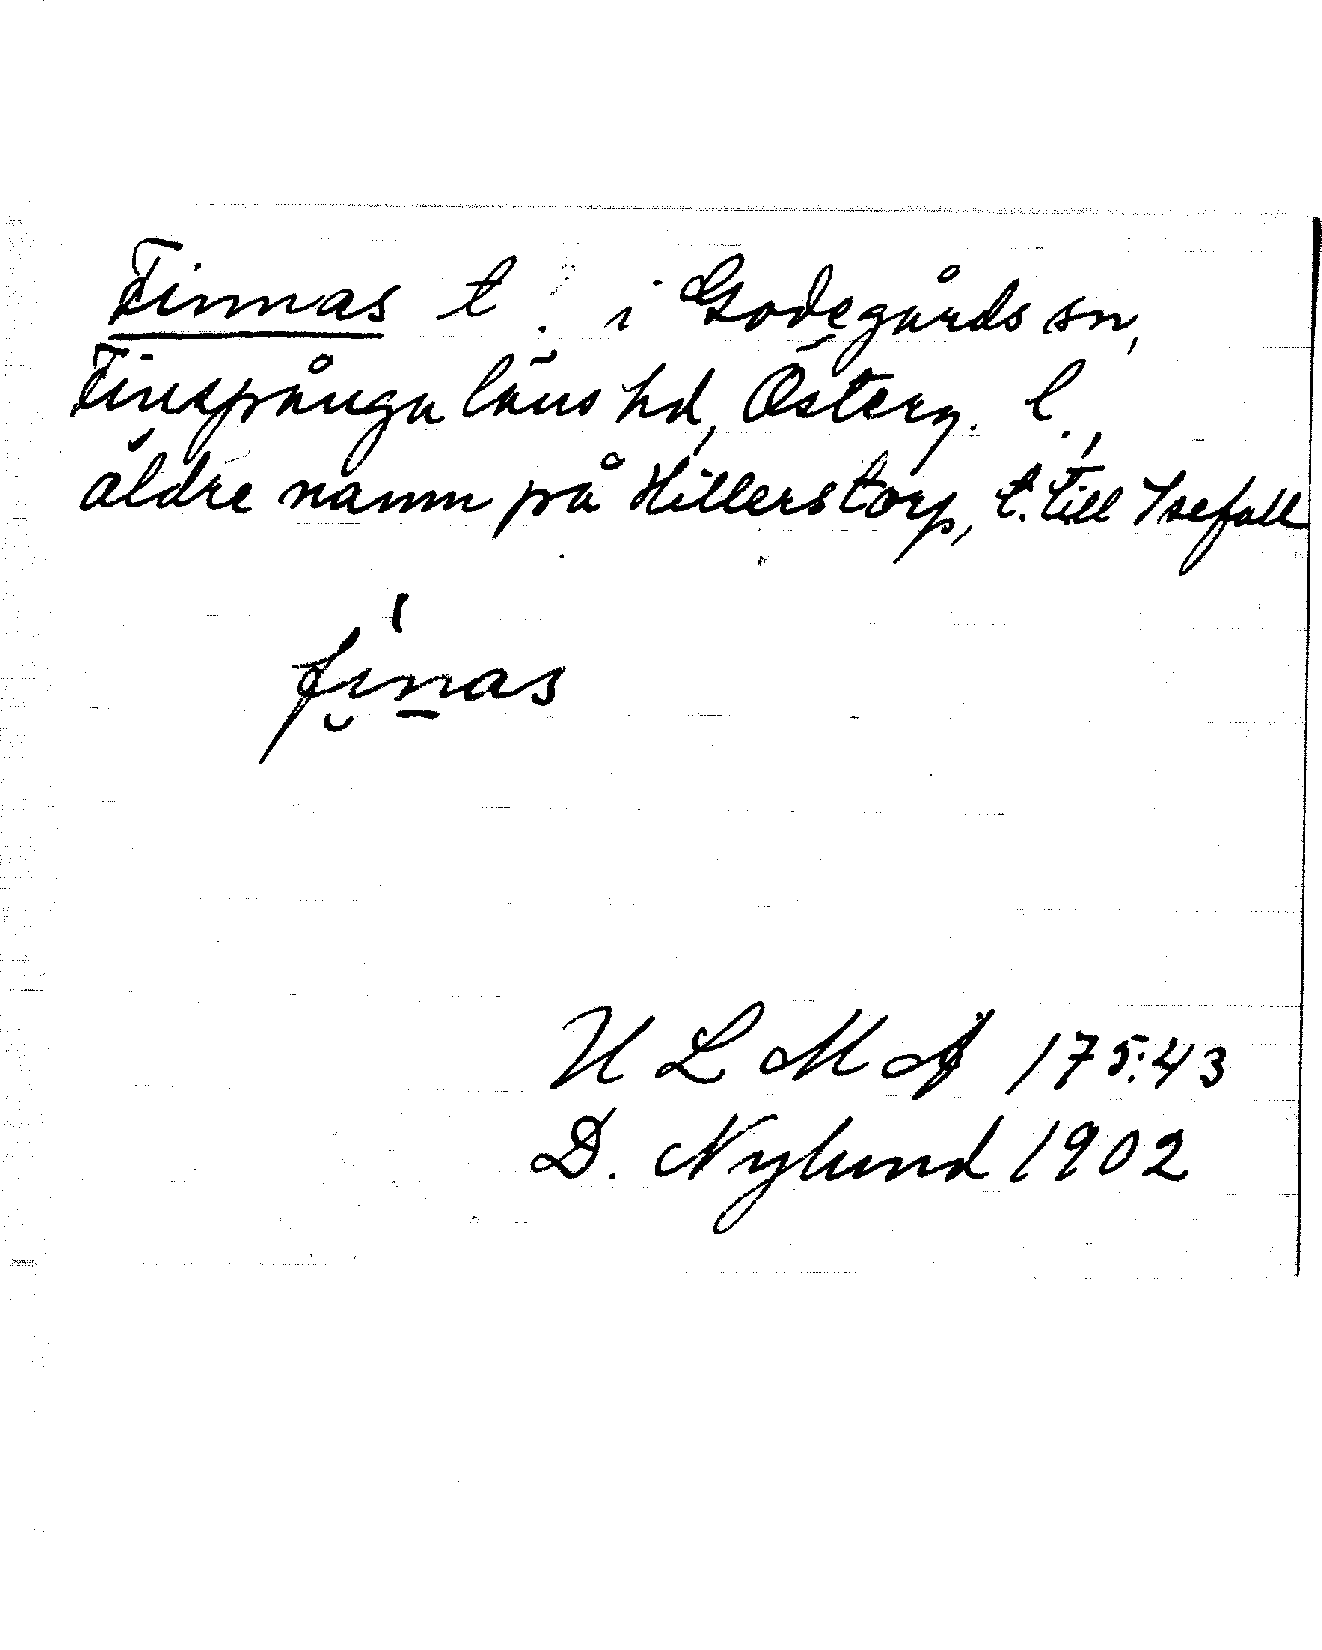 Finnas t. i Godegårds sn,
Finspånga läns hd, Österg. l.,
äldre namn på Hillerstorp, t. till Isefall
fi̮n̲as
U L M A 175:43
D. Nylund 1902